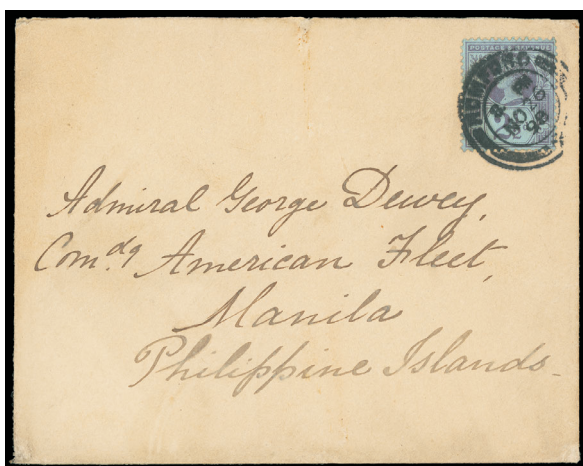 POSTAGE & REVENUE
ROMFORD
NO 26
98
Admiral George Dewey,
Comdg American Fleet,
Manila
Philippine Islands.